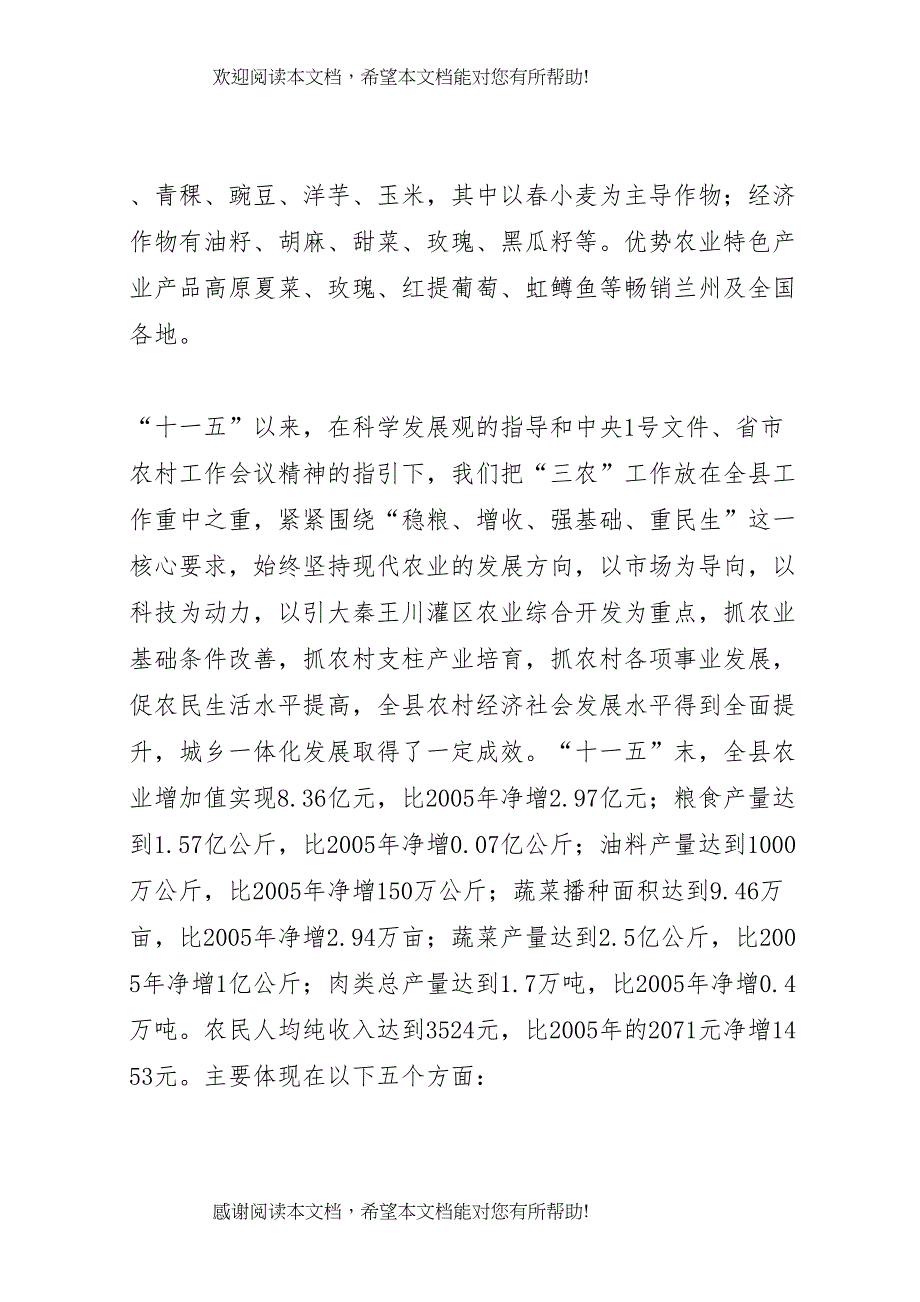 欢迎阅读本文档，希望本文档能对您有所帮助!
、青稞、豌豆、洋芋、玉米，其中以春小麦为主导作物；经济
作物有油籽、胡麻、甜菜、玫瑰、黑瓜籽等。优势农业特色产
业产品高原夏菜、玫瑰、红提葡萄、虹鳟鱼等畅销兰州及全国
各地。
“十一五”以来，在科学发展观的指导和中央1号文件、省市
农村工作会议精神的指引下，我们把“三农”工作放在全县工
作重中之重，紧紧围绕“稳粮、增收、强基础、重民生”这一
核心要求，始终坚持现代农业的发展方向，以市场为导向，以
科技为动力，以引大秦王川灌区农业综合开发为重点，抓农业
基础条件改善，抓农村支柱产业培育，抓农村各项事业发展，
促农民生活水平提高，全县农村经济社会发展水平得到全面提
升，城乡一体化发展取得了一定成效。“十一五”末，全县农
业增加值实现8.36亿元，比2005年净增2.97亿元；粮食产量达
到1.57亿公斤，比2005年净增0.07亿公斤；油料产量达到1000
万公斤，比2005年净增150万公斤；蔬菜播种面积达到9.46万
亩，比2005年净增2.94万亩；蔬菜产量达到2.5亿公斤，比200
5年净增1亿公斤；肉类总产量达到1.7万吨，比2005年净增0.4
万吨。农民人均纯收入达到3524元，比2005年的2071元净增14
53元。主要体现在以下五个方面：
感谢阅读本文档，希望本文档能对您有所帮助!